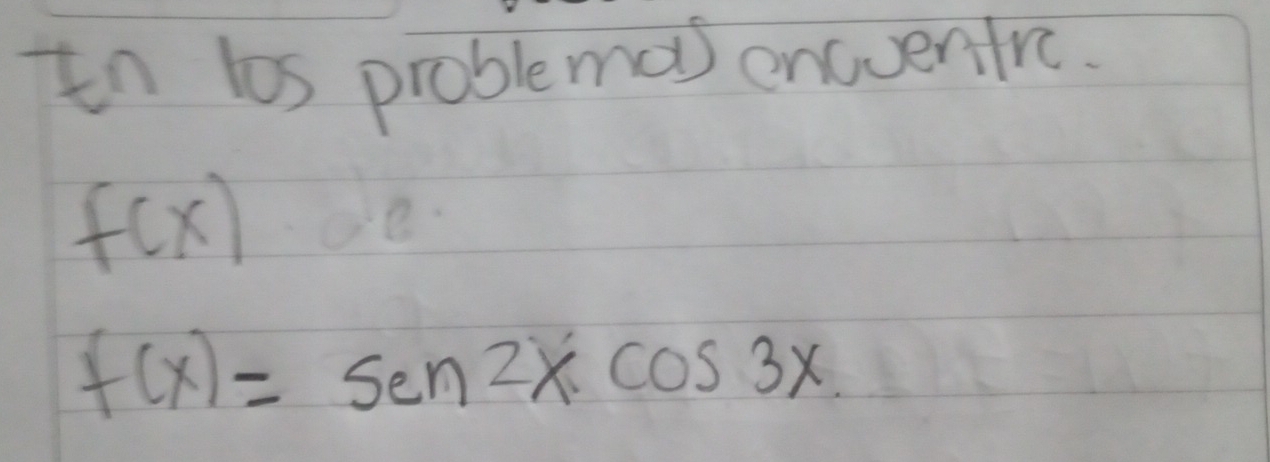 En los problemas encuentre.
f(x) de.
f(x) = Sen 2x cos 3x.